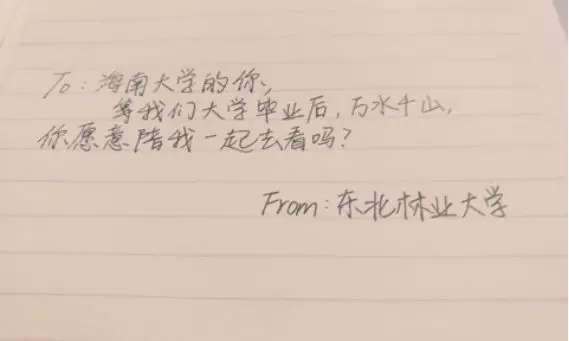 To：海南大学的你，
等我们大学毕业后，万水千山，
你愿意陪我一起去看吗？
From：东北林业大学